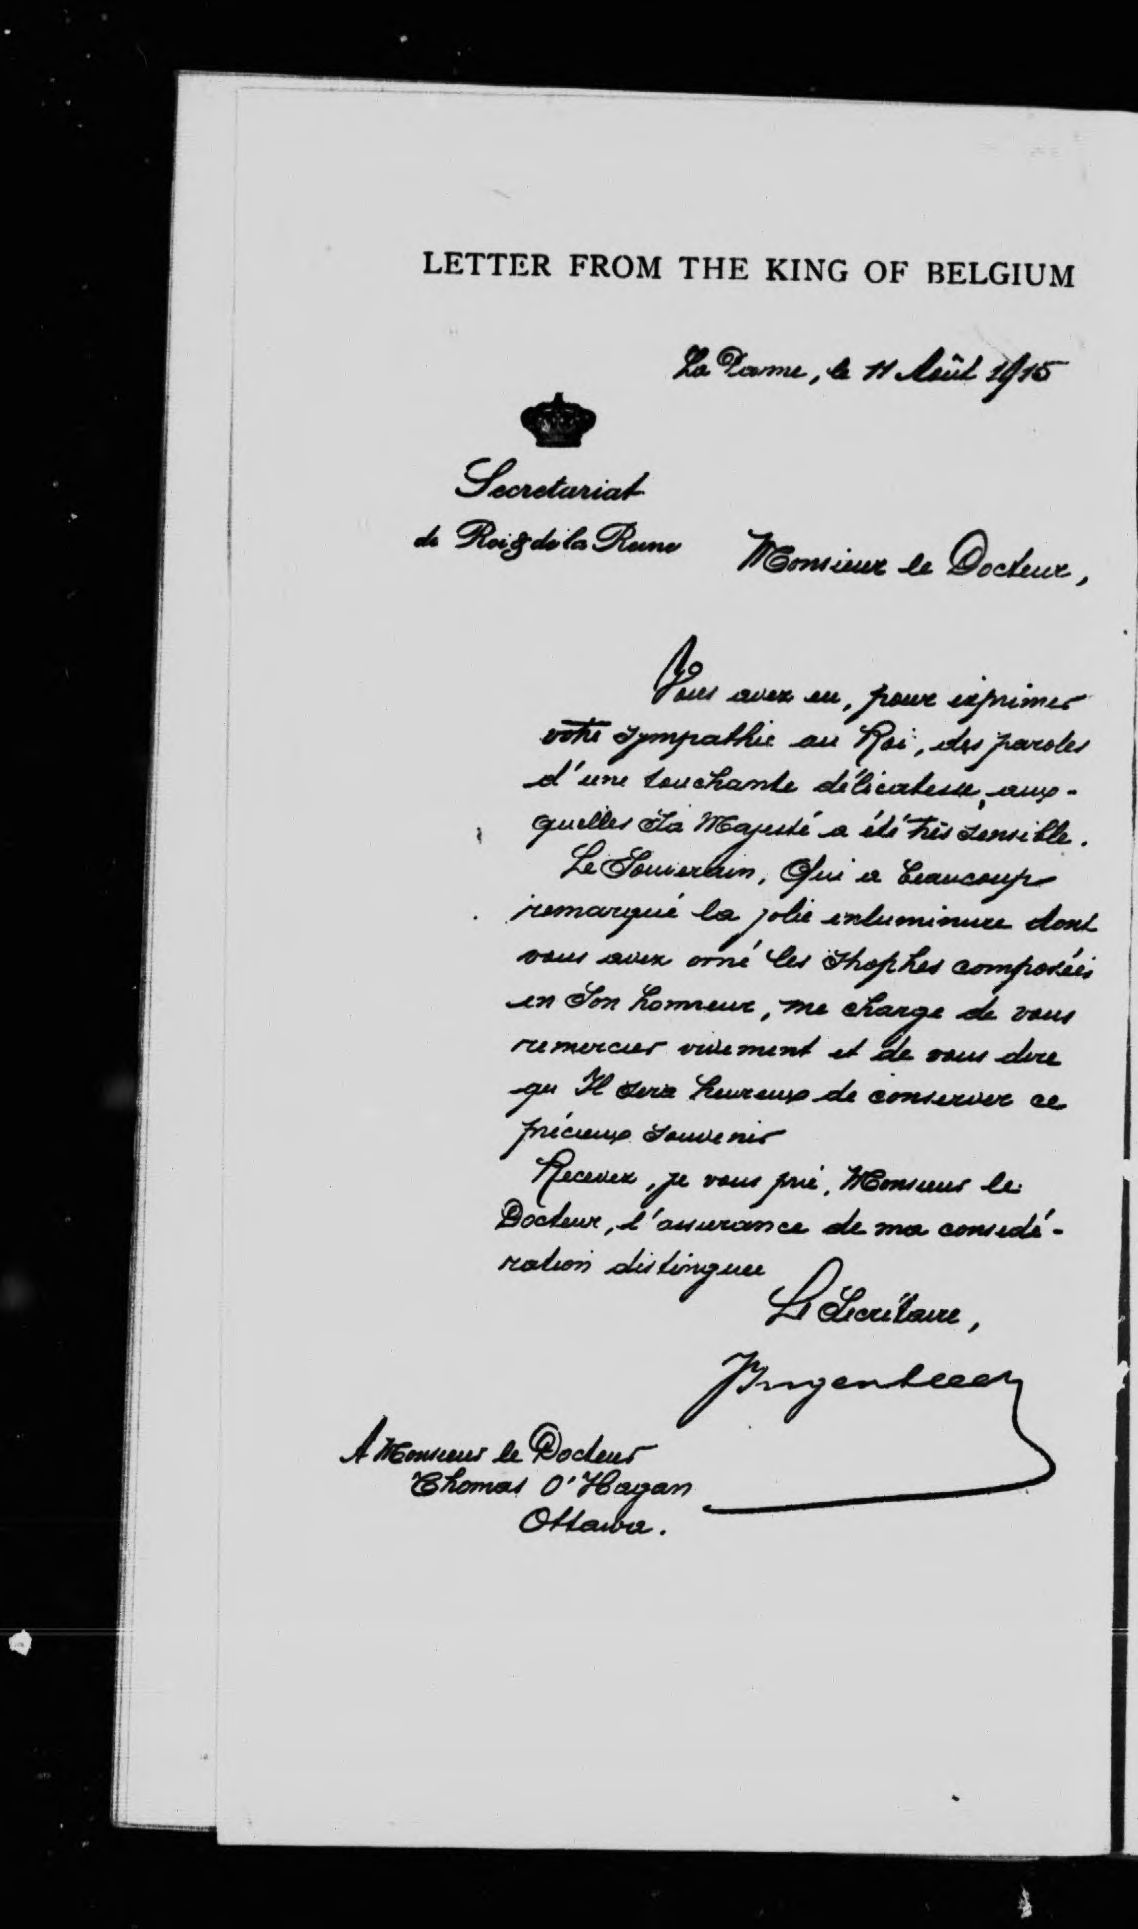 LETTER FROM THE KING OF BELGIUM
La Panne, le 11 Août 1915
Secretariat
de Roi & de la Reine
Monsieur le Docteur,
Vous avez eu, pour exprimer
votre sympathie au Roi, des paroles
d'une touchante délicatesse, aux-
quelles Sa Majesté a été très sensible.
Le Souverain, Qui a beaucoup
remarqué la jolie enluminure dont
vous avez orné les strophes composées
en Son honneur, me charge de vous
remercier vivement et de vous dire
qu Il sera heureux de conserver ce
précieux souvenir
Recevez, je vous prie, Monsieur le
Docteur, l'assurance de ma considé-
ration distinguee
Le Secrétaire,
A Monsieur le Docteur
Thomas O'Hagan
Ottawa.